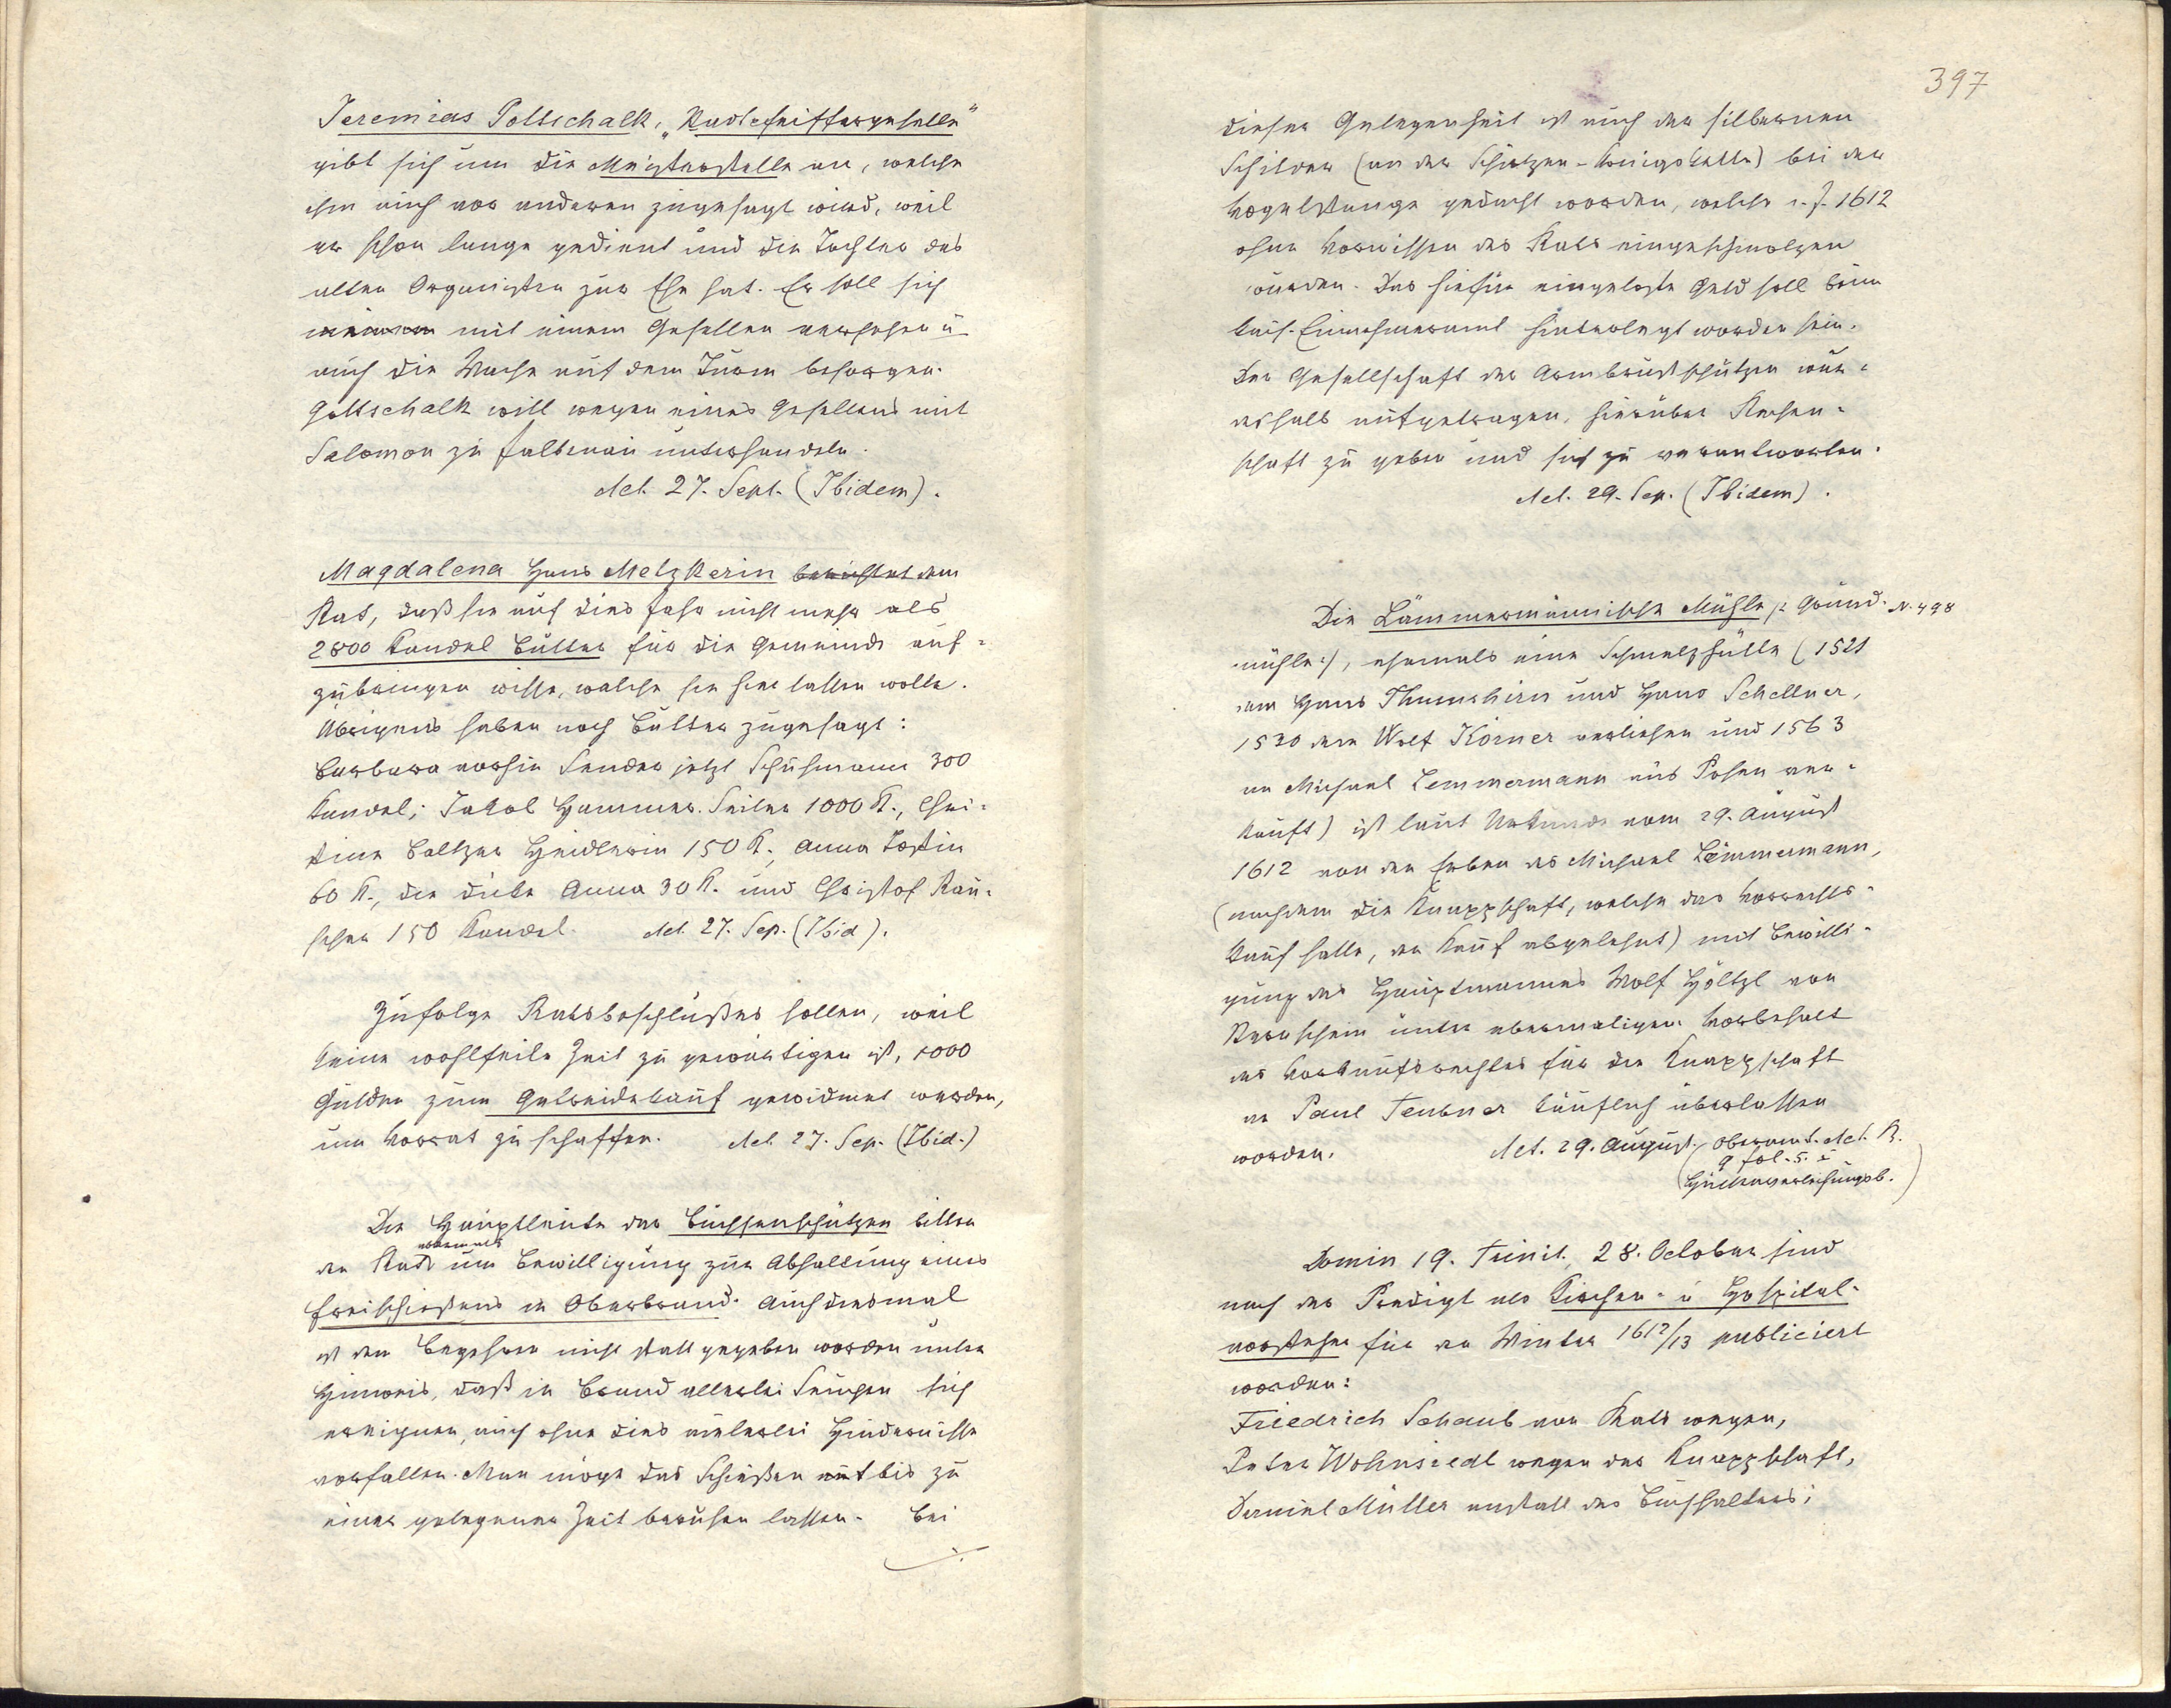 Jeremias Pottschalk, „Stadtpfeiffergeselle"
gibt sich um die Meisterstelle an, welche
ihm auch vor anderen zugesagt wird, weil
er schon lange gedient und die Tochter des
alten Organisten zur Ehe hat. Er soll sich
mit einem Gesellen versehen u
auch die Wache auf dem Turm besorgen.
Gottschalk will wegen eines Gesellens mit
Salomon zu Falkenau unterhandeln.
Act. 27. Sept. (Ibidem).
Magdalena Hans Metzkerin berichtet dem
Rat, daß sie auf dies Jahr nicht mehr als
2800 Kandel Butter für die Gemeinde auf-
zubringen wisse, welche sie hier lassen wolle.
Übrigens haben noch Butter zugesagt:
Barbara vorhin Sender jetzt Schuhmann 300
Kandel; Jakob Hammer. Seiler 1000 K., Chri-
stine Baltzer Heidlerin 150 K., Anna
60 K., die dicke Anna 30 K. und Christof Rau-
scher 150 Kandel. Act. 27. Sep. (Ibid).
Zufolge Ratsbeschlußes sollen, weil
keine wohlfeile Zeit zu gewärtigen ist, 1000
Gulden zum Getreidekauf gewidmet werden,
um Vorrat zu schaffen. Act. 27. Sep. (Ibid.)
Die Hauptleute der Büchsenschützen bitten
abermals
den Rat um Bewilligung zur Abhaltung eines
Freischießens in Oberbrand. Auch diesmal
ist dem Begehren nicht statt gegeben worden unter
Hinweis, daß in Brand allerlei Seuchen sich
ereignen, auch ohne dies vielerlei Hindernisse
vorfallen. Man möge das Schießen bis zu
einer gelegenen Zeit beruhen lassen. Bei
./.
397
dieser Gelegenheit ist auch der silbernen
Schilder (an der Schützen-Königskette) bei der
Vogelstange gedacht worden, welche i. J. 1612
ohne Vorwissen des Rats eingeschmolzen
wurden. Das hiefür eingelegte Geld soll beim
kais. Einnehmeramt hinterlegt worden sein.
Der Gesellschaft der Armbrustschützen wur-
deshalb aufgetragen, hierüber Rechen-
schaft zu geben und sich zu verantworten.
Act. 29. Sep. (Ibidem).
Die Lämmermännische Mühle /: Grund- N. 498
mühle :/, ehemals eine Schmelzhütte (1521
dem Hans Thumshirn und Hans Schellner,
1530 dem Wolf Körner verliehen und 1563
an Michael Lemmermann aus Posen ver-
kauft) ist laut Urkunde vom 29. August
1612 von den Erben des Michael Lämmermann,
(nachdem die Knappschaft, welche das Vorrechts-
kauf hatte, den Kauf abgelehnt) mit Bewilli-
gung des Hauptmannes Wolf Höltzl von
Sternstein unter abermaligem Vorbehalt
des Vorkaufsrechtes für die Knappschaft
an Paul Teubner käuflich überlassen
worden. Act. 29. August. (Oberamt. Act. R.
9 fol. 5. I
Hüttenverleihungsb.)
Domin 19. Trinit, 28. October sind
nach der Predigt als Kirchen- u Hospital-
vorsteher für den Winter 1612/13 publiciert
worden:
Friedrich Schaub von Rats wegen,
Peter Wohnsiedl wegen der Knappschaft,
Daniel Müller anstatt des Buchhalters;